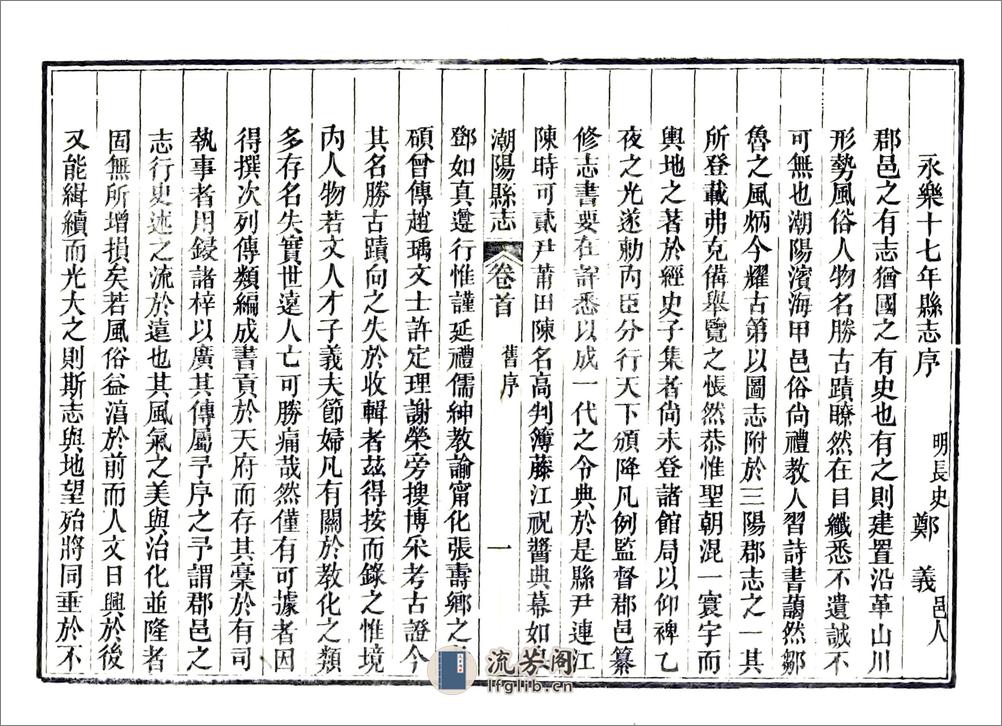 永樂十七年縣志序 明長史 鄭義 邑人
郡邑之有志猶國之有史也有之則建置沿革山川
形勢風俗人物名勝古蹟瞭然在目纖悉不遺誠不
可無也潮陽濱海甲邑俗尚禮教人習詩書藹然鄒
魯之風炳今耀古第以圖志附於三陽郡志之一其
所登載弗克備舉覽之悵然恭惟聖朝混一寰宇而
輿地之著於經史子集者尚未登諸館局以仰裨乙
夜之光遂勅內臣分行天下頒降凡例監督郡邑纂
修志書要在詳悉以成一代之令典於是縣尹連江
陳時可貳尹莆田陳名高判簿藤江祝醬典幕如
潮陽縣志 卷首 舊序 一
鄧如真遵行惟謹延禮儒紳教諭甯化張壽鄉之
碩曾傳趙瑀文士許定理謝榮旁搜博采考古證今
其名勝古蹟向之失於收輯者茲得按而錄之惟境
內人物若文人才子義夫節婦凡有關於教化之類
多存名失實世遠人亡可勝痛哉然僅有可據者因
得撰次列傳類編成書貢於天府而存其稾於有司
執事者用鋟諸梓以廣其傳屬予序之予謂郡邑之
志行史迹之流於遠也其風氣之美與治化並隆者
固無所增損矣若風俗益淳於前而人文日興於後
又能緝續而光大之則斯志與地望殆將同垂於不
流芳閣
lfglib.cn